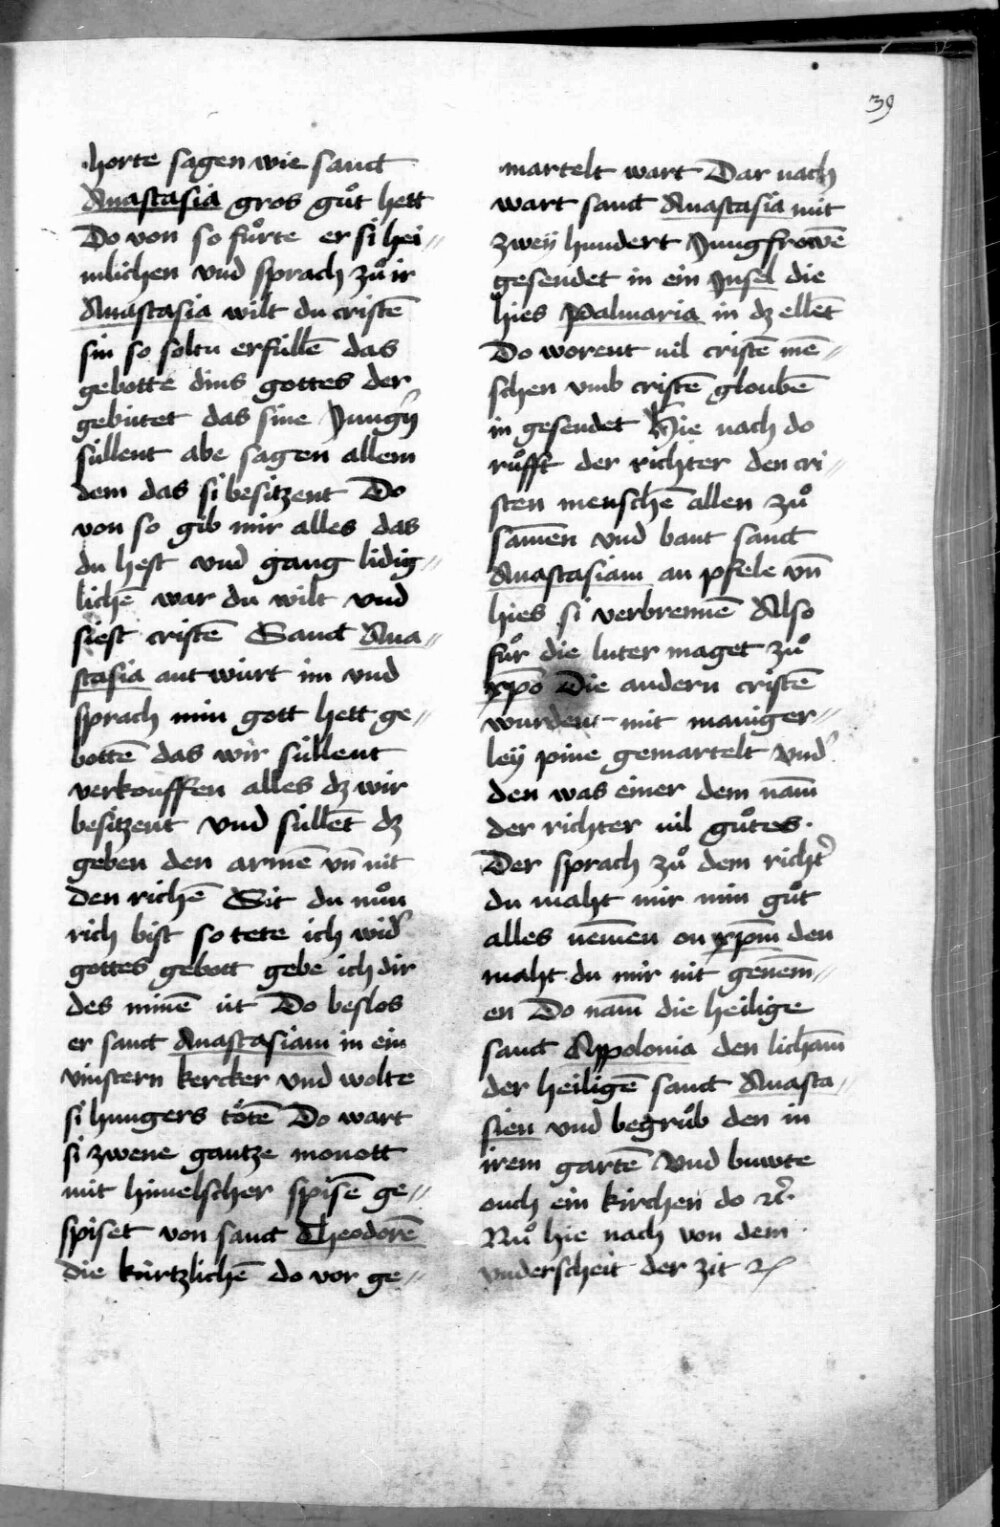 39
horte sagen wie sanct
Anastasia gros guͦt hett
Do von so fuͦrte er si hei〃
mlichen vnd sprach zuͦ ir
Anastasia wilt du cristē
sin so soltu erfúllē das
gebotte dins gottes der
gebútet das sine Jungr̄
súllent abe sagen allem
dem das si besitzent Do
von so gib mir alles das
du hest vnd gang lidig〃
lichē war du wilt vnd
siest cristē Sanct Ana〃
stasia antwúrt im vnd
sprach min gott hett ge〃
bottē das wir súllent
verkouffen alles dz wir
besitzent vnd súllēt dz
geben den armē vn̄ nit
den richē Sit du nuͦn
rich bist so tete ich wid͛
gottes gebott gebe ich dir
des minē út Do beslos
er sanct Anastasiam in ein
vinstern kercker vnd wolte
si hungers toͤtē Do wart
si zwene gantze monott
mit himelscher spisē ge〃
spiset von sanct Theodorē
die kúrtzlichē do vor ge〃
martelt wart Dar nach
wart sanct Anastasia mit
zweÿ hundert Jungfrowē
gesendet in ein Jnsel die
hies Palmaria in dz ellēt
Do worent uil cristē mē〃
schen vmb cristē gloubē
in gesendet Hie nach do
ruͦfft der richter den cri〃
sten menschē allen zuͦ
sam̄en vnd bant sanct
Anastasiam an pfele vn̄
hies si verbrennē Also
fuͦr die luter maget zuͦ
xp̄o Die andern cristē
wurdent mit maniger〃
leÿ pine gemartelt Vnd͛
den was einer dem nam̄
der richter uil guͦtes.
Der sprach zuͦ dem richt͛
du maht mir min guͦt
alles nem̄en on xp̄m den
maht du mir nit genēm〃
en Do nam̄ die heilige
sanct Appolonia den licham̄
der heiligē sanct Anasta〃
sien vnd begruͦb den in
irem gartē Vnd buwte
ouch ein kirchen do ꝛc̄.
Nuͦ hie nach von dem
vnderscheit der zit ꝛc